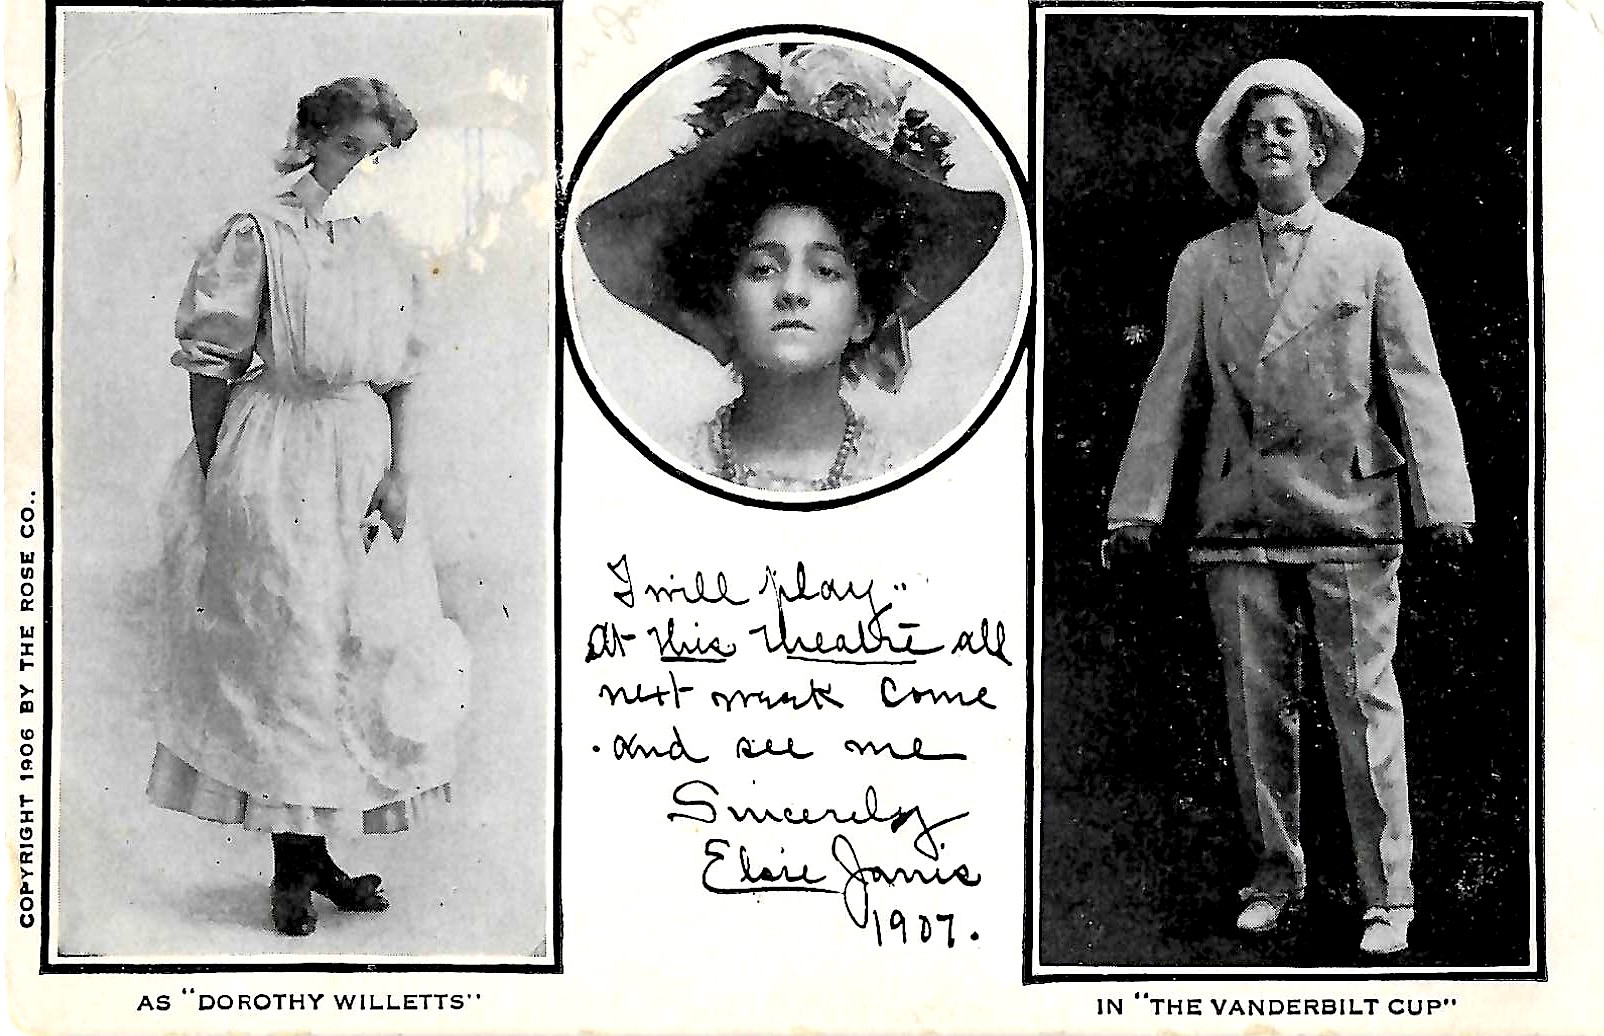 COPYRIGHT 1906 BY THE ROSE CO..
I will play
At this theatre all
next week come
and see me
Sincerely
Elsie Janis
1907.
AS "DOROTHY WILLETTS"
IN "THE VANDERBILT CUP"